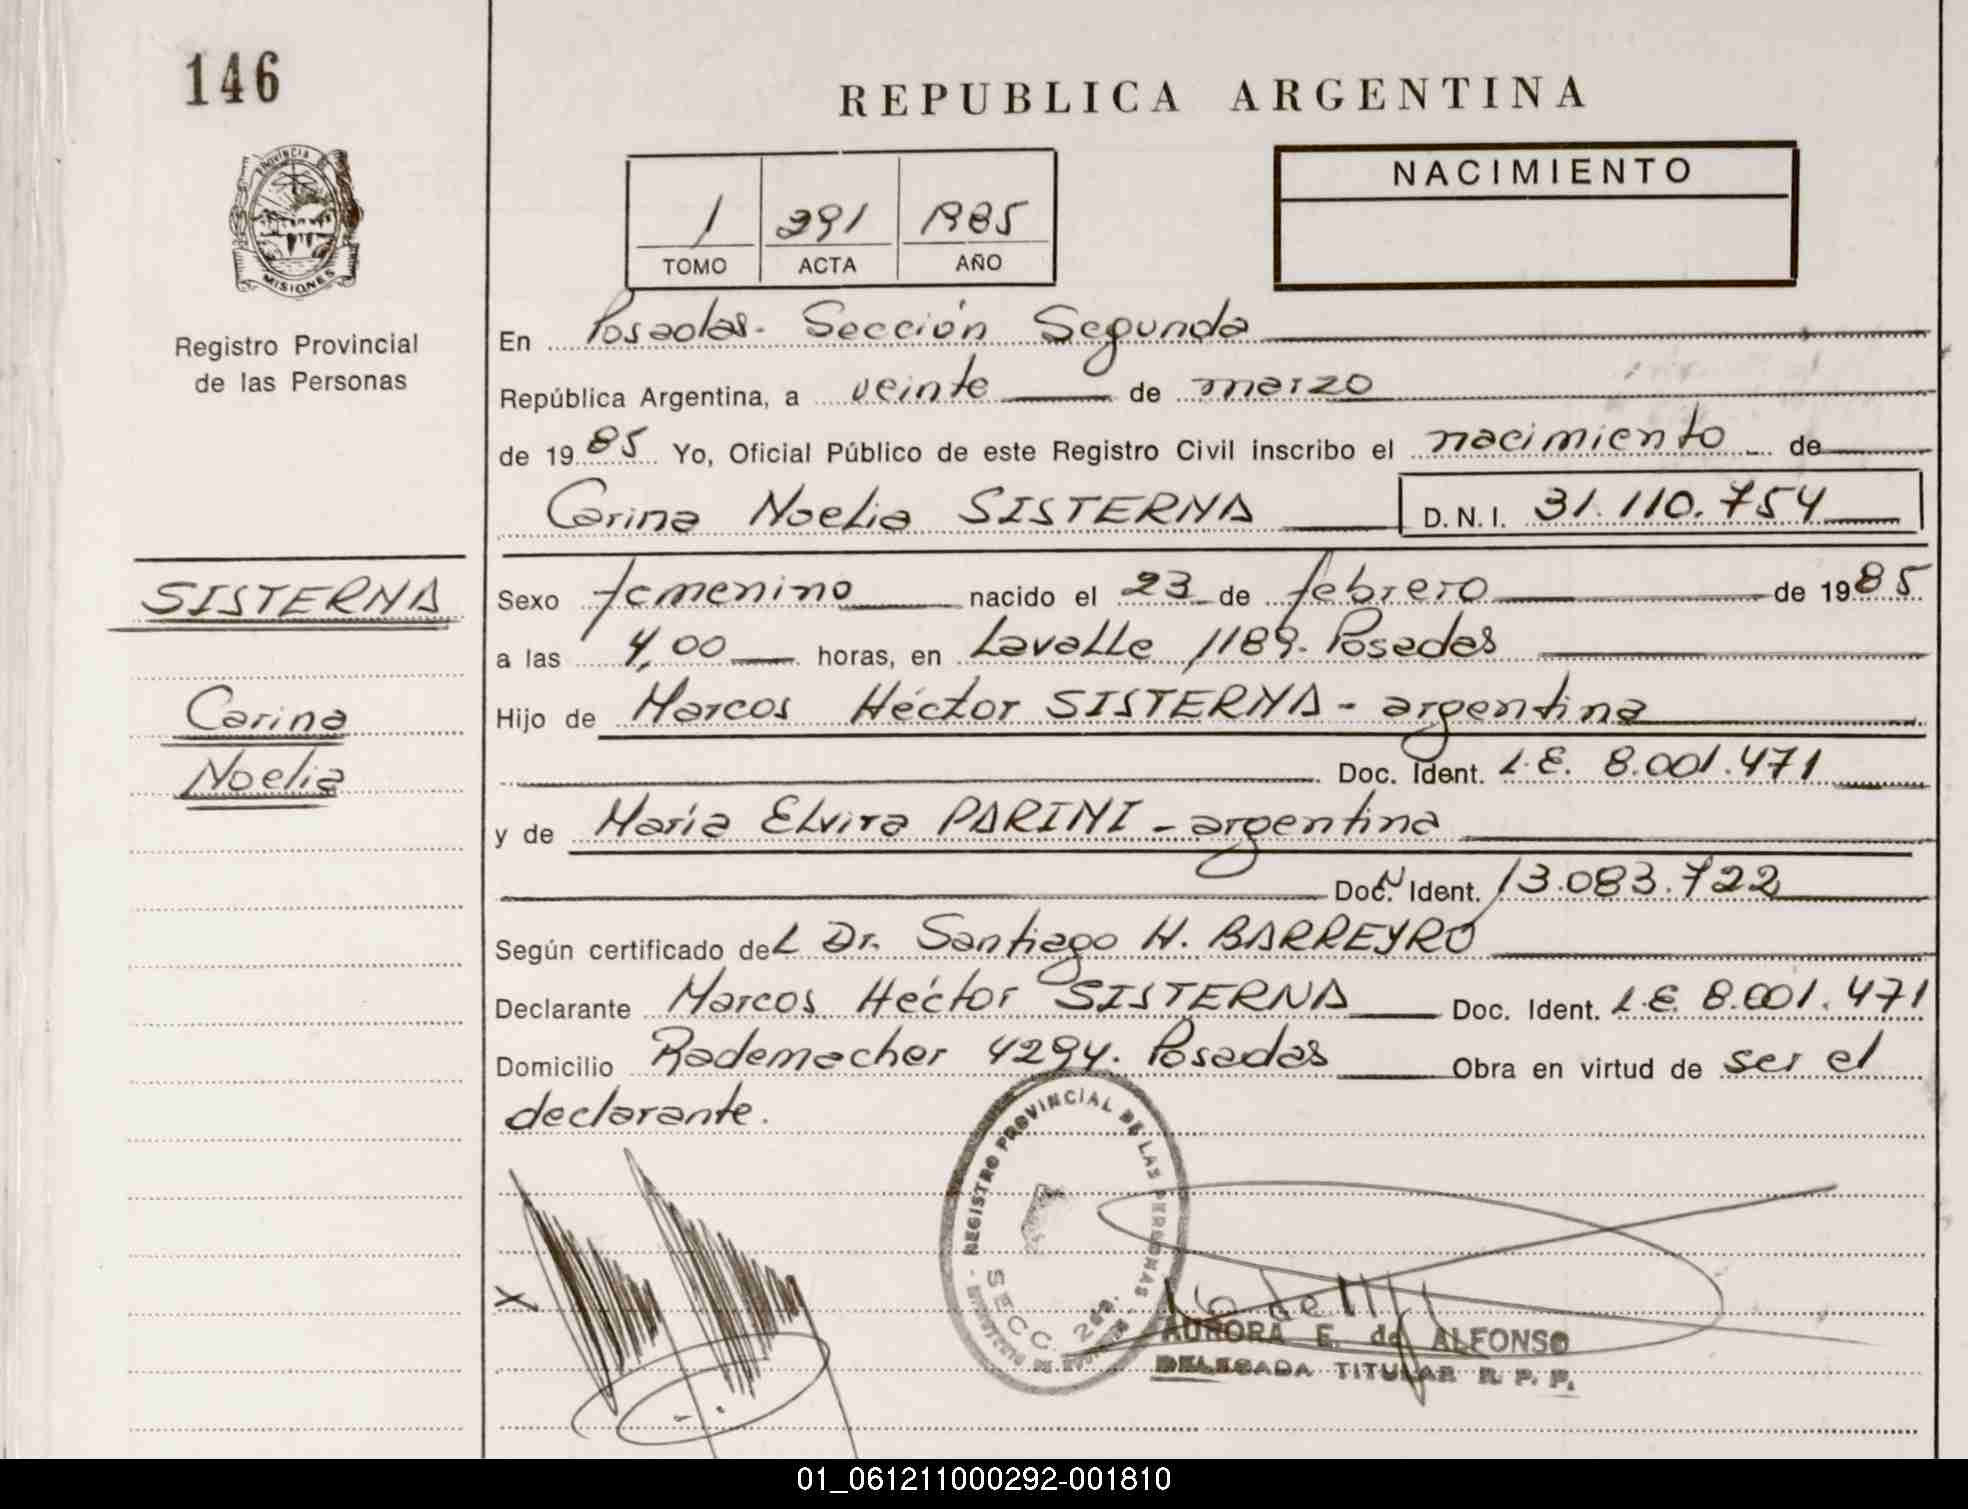 146
REPUBLICA ARGENTINA
PROVINCIA DE
MISIONES
Registro Provincial
de las Personas
1 291 1985
TOMO ACTA AÑO
NACIMIENTO
En Posadas. Sección Segunda
República Argentina, a veinte de marzo
de 1985 Yo, Oficial Público de este Registro Civil inscribo el nacimiento de
Carina Noelia SISTERNA D.N.I. 31.110.754
SISTERNA
Carina
Noelia
Sexo femenino nacido el 23 de febrero de 1985
a las 4,00 horas, en Lavalle 1189. Posadas
Hijo de Marcos Héctor SISTERNA - argentina
Doc. Ident. L.E. 8.001.471
y de María Elvira PARINI - argentina
Doc. Ident. 13.083.722
Según certificado del Dr. Santiago H. BARREYRO
Declarante Marcos Héctor SISTERNA Doc. Ident. L.E. 8.001.471
Domicilio Rademacher 4294. Posadas Obra en virtud de ser el
declarante.
REGISTRO PROVINCIAL DE LAS PERSONAS
SECC. 2da.
X
AURORA E. de ALFONSO
DELEGADA TITULAR R. P. P.
01_061211000292-001810